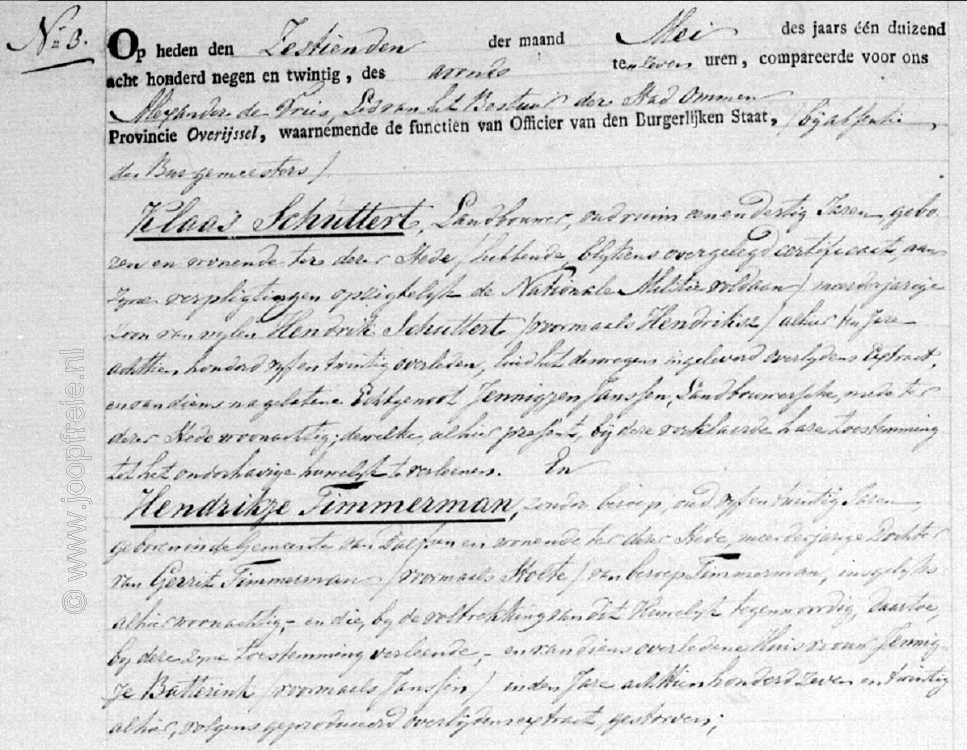 No 3.
Op heden den Zestienden der maand Mei des jaars één duizend
acht honderd negen en twintig, des avonds te zeven uren, compareerde voor ons
Alexander de Vries, Lid van het Bestuur der Stad Ommen
Provincie Overijssel, waarnemende de functien van Officier van den Burgerlijken Staat, / bij absentie
des Burgemeesters /
Klaas Schuttert, Landbouwer, oud ruim een en dertig Jaren, gebo-
ren en wonende ter dezer Stede, / hebbende, blykens overgelegd certificaat, aan
zyne verpligtingen opzigtelyk de Nationale Militie voldaan / meerderjarige
zoon van wylen Hendrik Schuttert, / voormaals Hendriksz / alhier ten Jare
achttien honderd vyf en twintig overleden, luid het deswegen ingeleverd overlydens Extract,
en van diens nagelatene Echtgenoot Jennigjen Janssen, Landbouwersche, mede ter
dezer Stede woonachtig; dewelke alhier present, by deze verklaarde hare toestemming
tot het onderhavige huwelyk te verleenen. En
Hendrikje Timmerman, zonder beroep, oud vyf en twintig Jaren
geboren in de Gemeente van Dalfsen en wonende ter dezer Stede, meerderjarige Dochter
van Gerrit Timmerman / voormaals Stolte / van beroep Timmerman, insgelyks
alhier woonachtig,- en die, by de voltrekking van dit Huwelyk tegenwoordig, daartoe,
by deze zyne toestemming verleende,- en van diens overledene Huisvrouw Jennig-
je Batterink / voormaals Janssen / in den Jare achttien honderd zeven en twintig
alhier, volgens geproduceerd overlydens extract, gestorven;
© www.joopfreie.nl